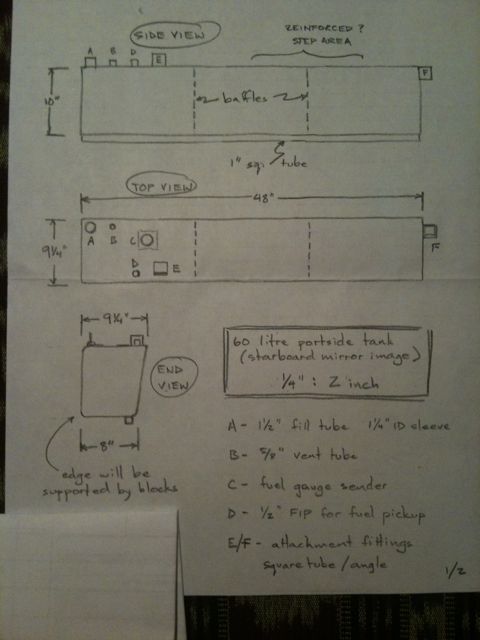 SIDE VIEW
REINFORCED?
STEP AREA
A B D E
F
10"
baffles
1" sq. tube
TOP VIEW
48"
9 1/4"
A B C
D E
F
9 1/4"
END
VIEW
8"
edge will be
supported by blocks
60 litre portside tank
(starboard mirror image)
1/4" : 2 inch
A - 1 1/2" fill tube 1 1/4" ID sleeve
B - 5/8" vent tube
C - fuel gauge sender
D - 1/2" FIP for fuel pickup
E/F - attachment fittings
square tube / angle
1/2